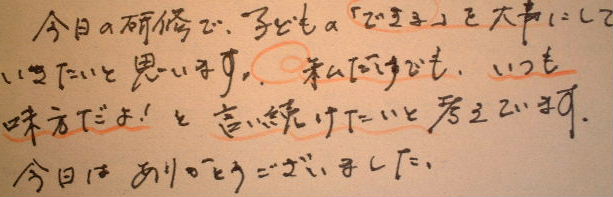 今日の研修で、子どもの「できる」を大事にして
いきたいと思います。私だけでも、いつも
味方だよ!と言い続けたいと考えています。
今日はありがとうございました。